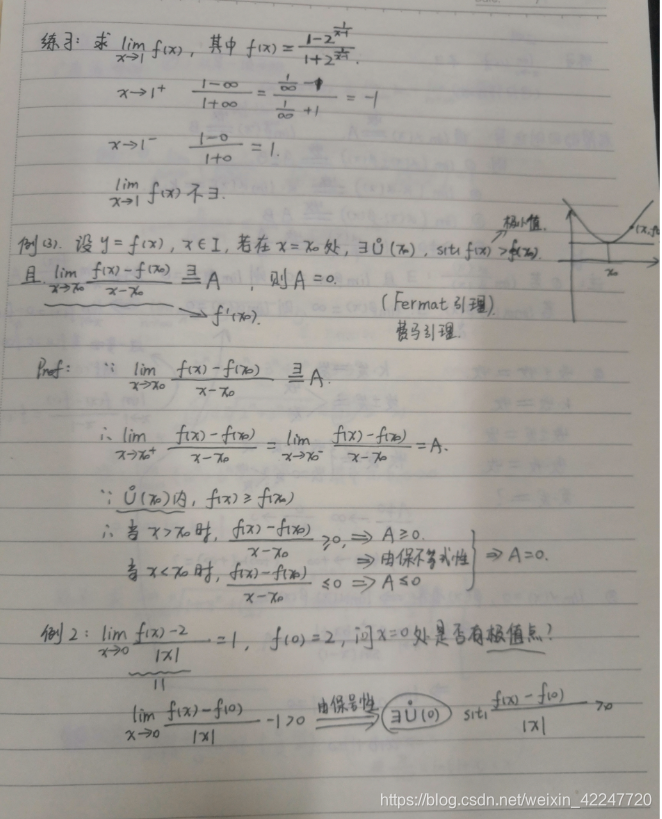 练习: 求 lim_{x→1} f(x), 其中 f(x) = (1-2^{1/(x-1)})/(1+2^{1/(x-1)}).
x→1⁺ (1-∞)/(1+∞) = (1/∞ -1)/(1/∞ +1) = -1
x→1⁻ (1-0)/(1+0) = 1.
lim_{x→1} f(x) 不∃.
极小值.
例(3). 设 y=f(x), x∈I, 若在 x=x₀ 处, ∃Ů(x₀), s.t. f(x)>f(x₀).
x₀
且 lim_{x→x₀} (f(x)-f(x₀))/(x-x₀) ∃= A, 则 A=0.
→ f'(x₀). (Fermat 引理).
费马引理.
Prof: ∵ lim_{x→x₀} (f(x)-f(x₀))/(x-x₀) ∃= A.
∴ lim_{x→x₀⁺} (f(x)-f(x₀))/(x-x₀) = lim_{x→x₀⁻} (f(x)-f(x₀))/(x-x₀) = A.
∵ Ů(x₀)内, f(x)≥f(x₀)
∴ 当 x>x₀ 时, (f(x)-f(x₀))/(x-x₀) ≥0, ⇒ A≥0.
⇒ 由保不等式性 ⇒ A=0.
当 x<x₀ 时, (f(x)-f(x₀))/(x-x₀) ≤0 ⇒ A≤0
例2: lim_{x→0} (f(x)-2)/|x| = 1, f(0)=2, 问 x=0 处是否有极值点?
lim_{x→0} (f(x)-f(0))/|x| =1>0 由保号性 ⇒ ∃Ů(0) s.t. (f(x)-f(0))/|x| >0
https://blog.csdn.net/weixin_42247720